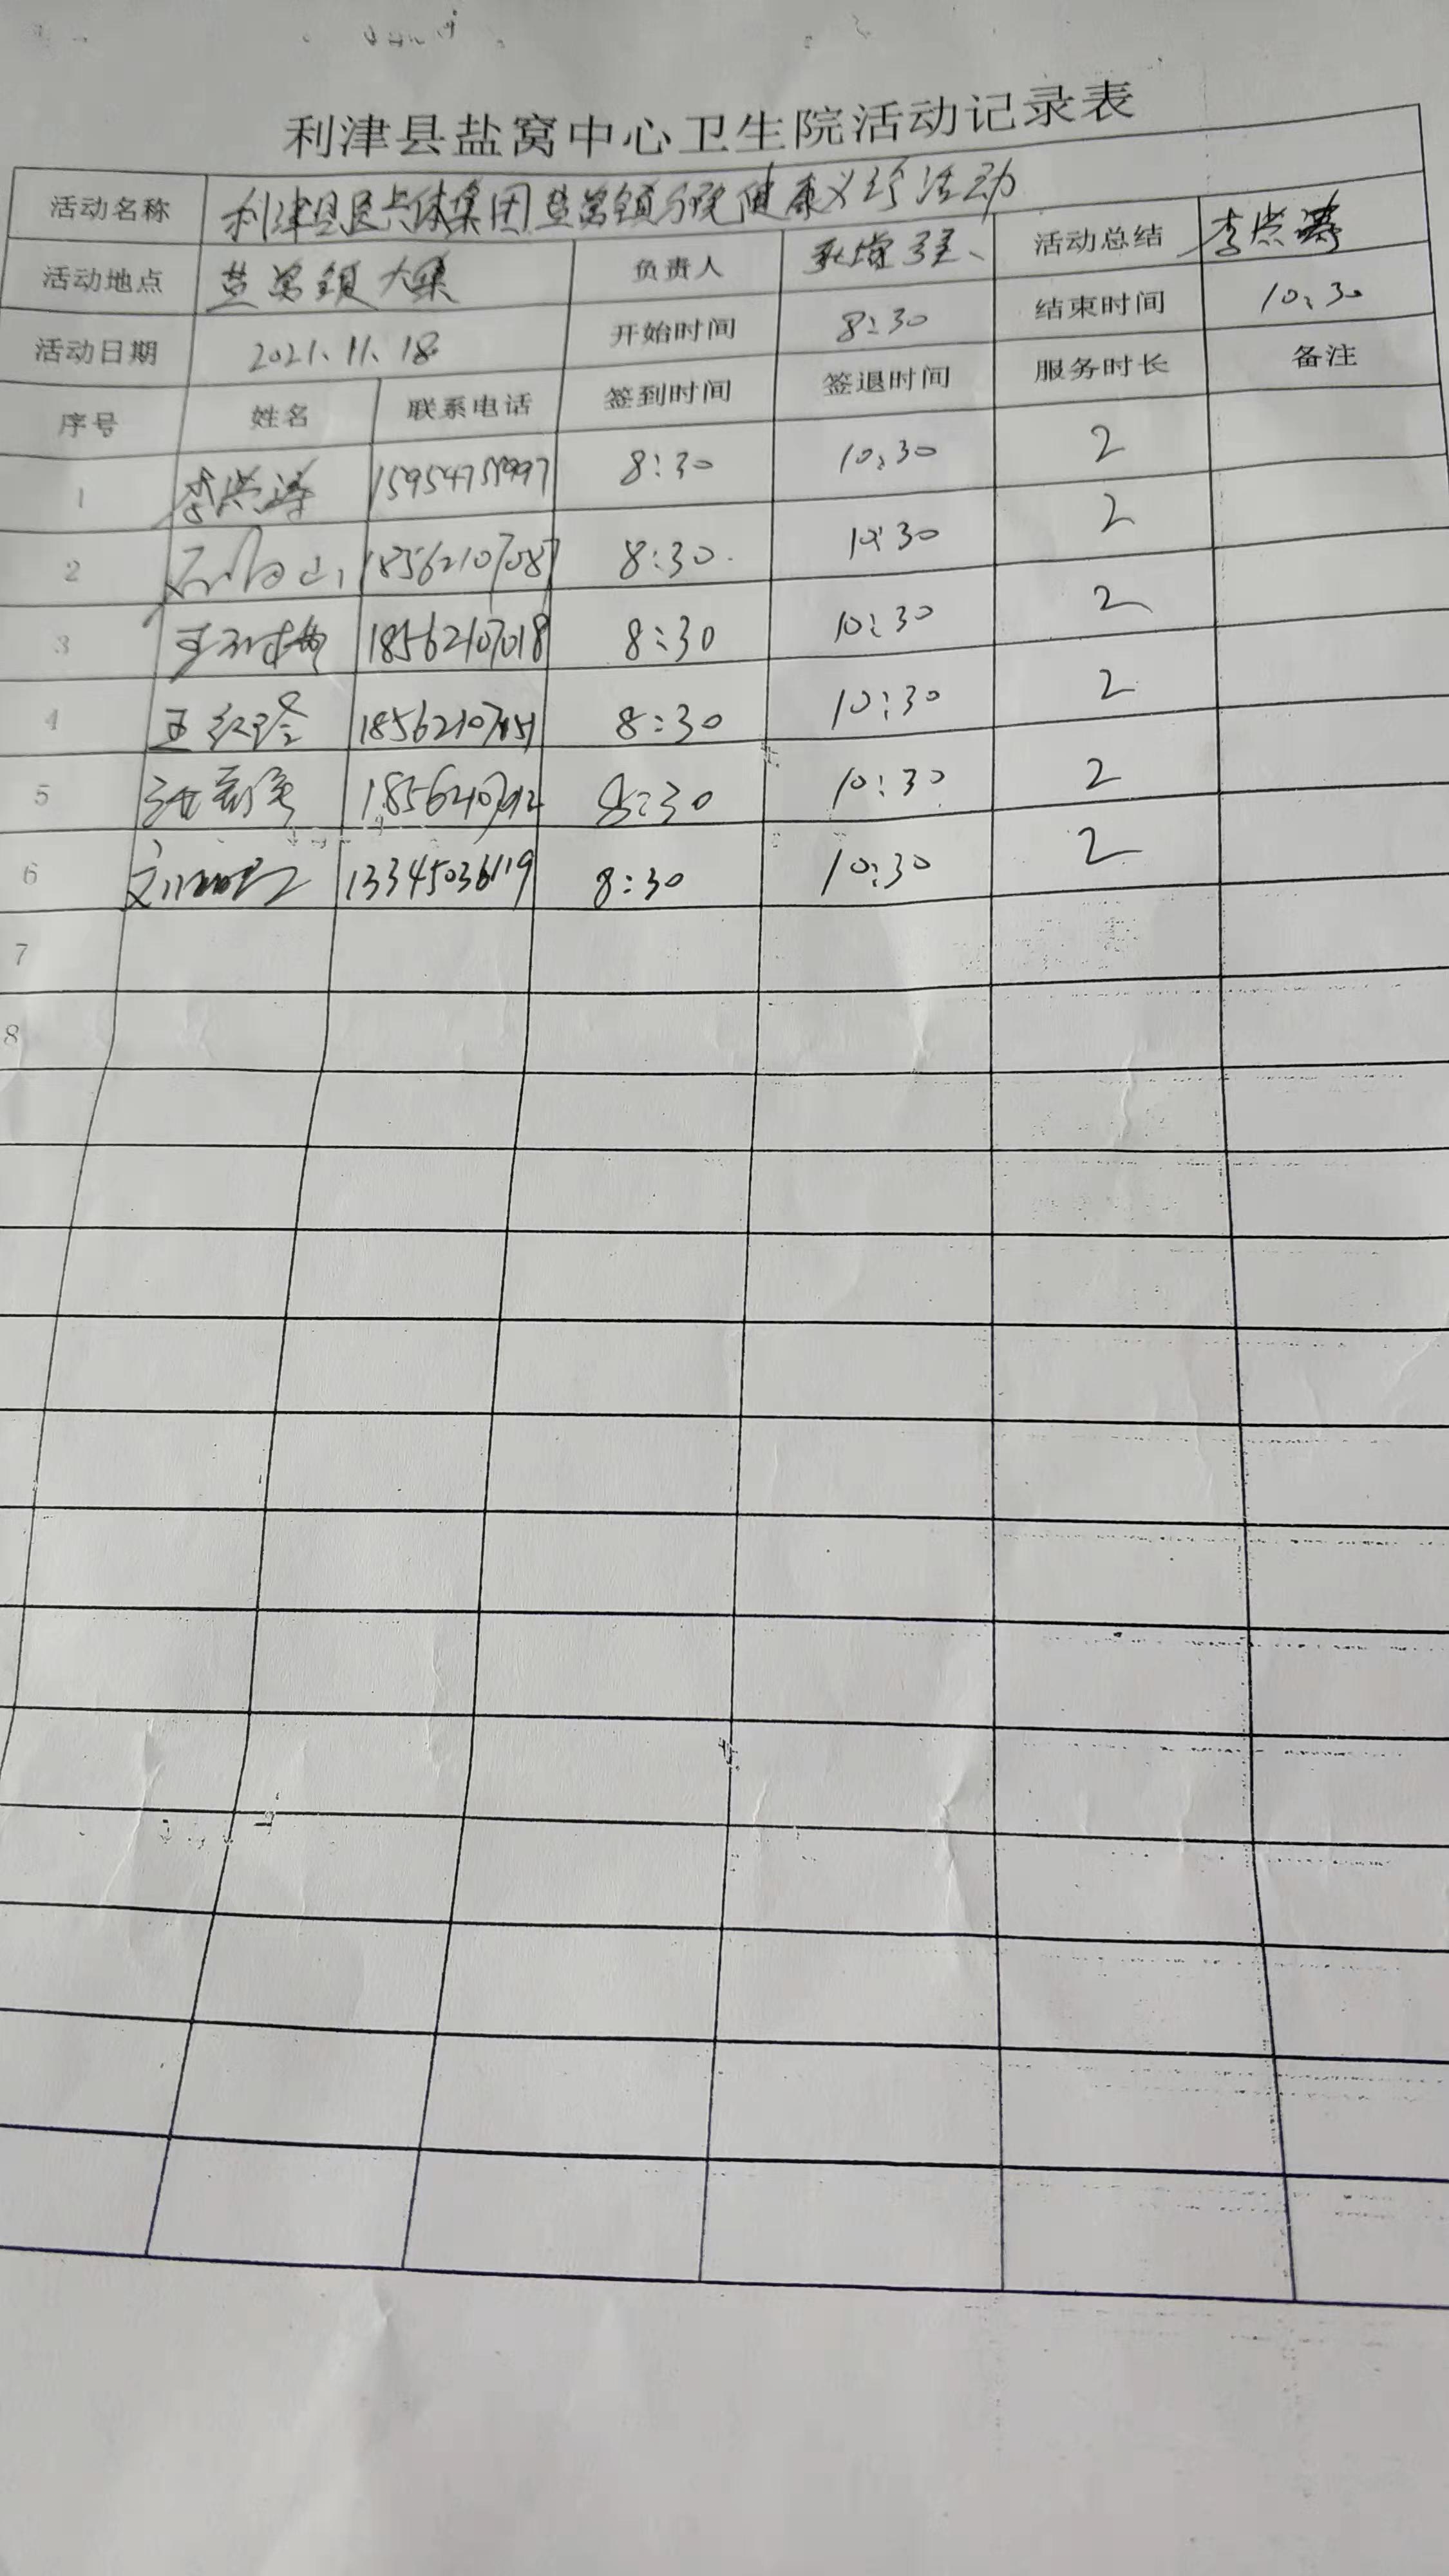 利津县盐窝中心卫生院活动记录表
活动名称 利津县医共体集团盐窝镇分院健康义诊活动
活动地点 盐窝镇大集 负责人 活动总结 李崇涛
活动日期 2021.11.18 开始时间 8:30 结束时间 10:30
序号 姓名 联系电话 签到时间 签退时间 服务时长 备注
1 李崇涛 8:30 10:30 2
2 18562107087 8:30 10:30 2
3 18562107018 8:30 10:30 2
4 王红玲 8:30 10:30 2
5 18562107012 8:30 10:30 2
6 13345036119 8:30 10:30 2
7
8